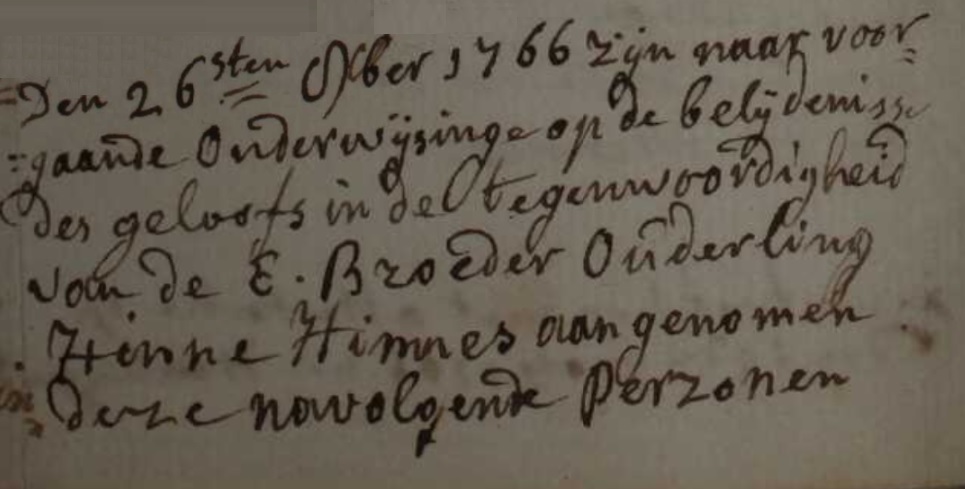 Den 26sten 8ber 1766 zijn naar voor=
=gaande Onderwijsinge op de belijdenisse
des geloofs in de tegenwoordigheid
van de E. Broeder Ouderling
Hinne Himnes aangenomen
deze navolgende Perzonen